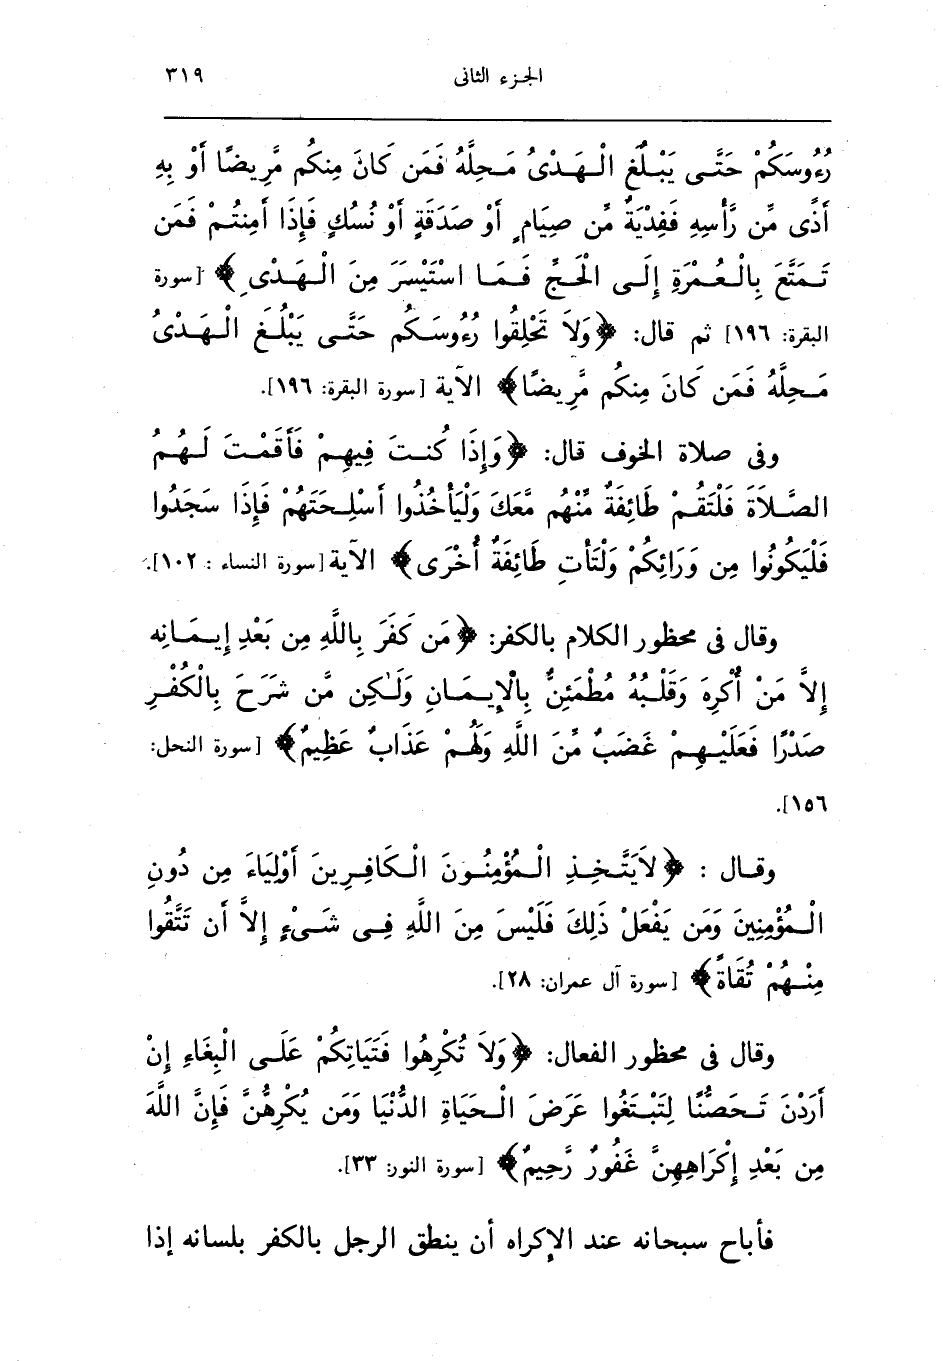 الجزء الثانى ٣١٩
رُءُوسَكُمْ حَتَّى يَبْلُغَ الْهَدْىُ مَحِلَّهُ فَمَن كَانَ مِنكُم مَّرِيضًا أَوْ بِهِ
أَذًى مِّن رَّأْسِهِ فَفِدْيَةٌ مِّن صِيَامٍ أَوْ صَدَقَةٍ أَوْ نُسُكٍ فَإِذَا أَمِنتُمْ فَمَن
تَمَتَّعَ بِالْعُمْرَةِ إِلَى الْحَجِّ فَمَا اسْتَيْسَرَ مِنَ الْهَدْىِ﴾ [سورة
البقرة: ١٩٦] ثم قال: ﴿وَلاَ تَحْلِقُوا رُءُوسَكُم حَتَّى يَبْلُغَ الْهَدْىُ
مَحِلَّهُ فَمَن كَانَ مِنكُم مَّرِيضًا﴾ الآية [سورة البقرة: ١٩٦].
وفى صلاة الخوف قال: ﴿وَإِذَا كُنتَ فِيهِمْ فَأَقَمْتَ لَهُمُ
الصَّلاَةَ فَلْتَقُمْ طَائِفَةٌ مِّنْهُم مَّعَكَ وَلْيَأْخُذُوا أَسْلِحَتَهُمْ فَإِذَا سَجَدُوا
فَلْيَكُونُوا مِن وَرَائِكُمْ وَلْتَأْتِ طَائِفَةٌ أُخْرَى﴾ الآية [سورة النساء : ١٠٢].
وقال فى محظور الكلام بالكفر: ﴿مَن كَفَرَ بِاللَّهِ مِن بَعْدِ إِيمَانِه
إِلاَّ مَنْ أُكْرِهَ وَقَلْبُهُ مُطْمَئِنٌّ بِالإِيمَانِ وَلَكِن مَّن شَرَحَ بِالْكُفْرِ
صَدْرًا فَعَلَيْهِمْ غَضَبٌ مِّنَ اللَّهِ وَلَهُمْ عَذَابٌ عَظِيمٌ﴾ [سورة النحل:
١٥٦].
وقال : ﴿لاَيَتَّخِذِ الْمُؤْمِنُونَ الْكَافِرِينَ أَوْلِيَاءَ مِن دُونِ
الْمُؤْمِنِينَ وَمَن يَفْعَلْ ذَلِكَ فَلَيْسَ مِنَ اللَّهِ فِى شَىْءٍ إِلاَّ أَن تَتَّقُوا
مِنْهُمْ تُقَاةً﴾ [سورة آل عمران: ٢٨].
وقال فى محظور الفعال: ﴿وَلاَ تُكْرِهُوا فَتَيَاتِكُمْ عَلَى الْبِغَاءِ إِنْ
أَرَدْنَ تَحَصُّنًا لِتَبْتَغُوا عَرَضَ الْحَيَاةِ الدُّنْيَا وَمَن يُكْرِهُّنَّ فَإِنَّ اللَّهَ
مِن بَعْدِ إِكْرَاهِهِنَّ غَفُورٌ رَّحِيمٌ﴾ [سورة النور: ٣٣].
فأباح سبحانه عند الإكراه أن ينطق الرجل بالكفر بلسانه إذا